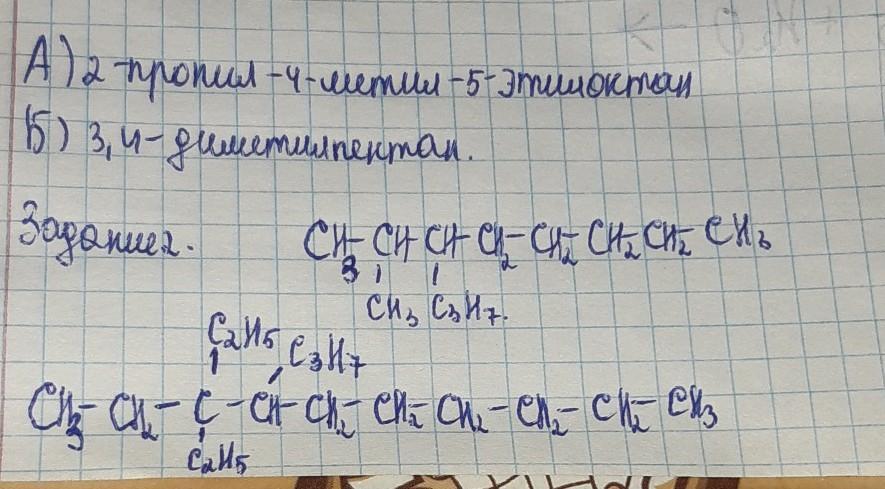 А) 2-пропил-4-метил-5-этилоктан
Б) 3,4-диметилпентан.
Задание 2.
CH3-CH-CH-CH2-CH2-CH2-CH2-CH3
CH3 C3H7.
C2H5 C3H7
CH3-CH2-C-CH-CH2-CH2-CH2-CH2-CH2-CH3
C2H5